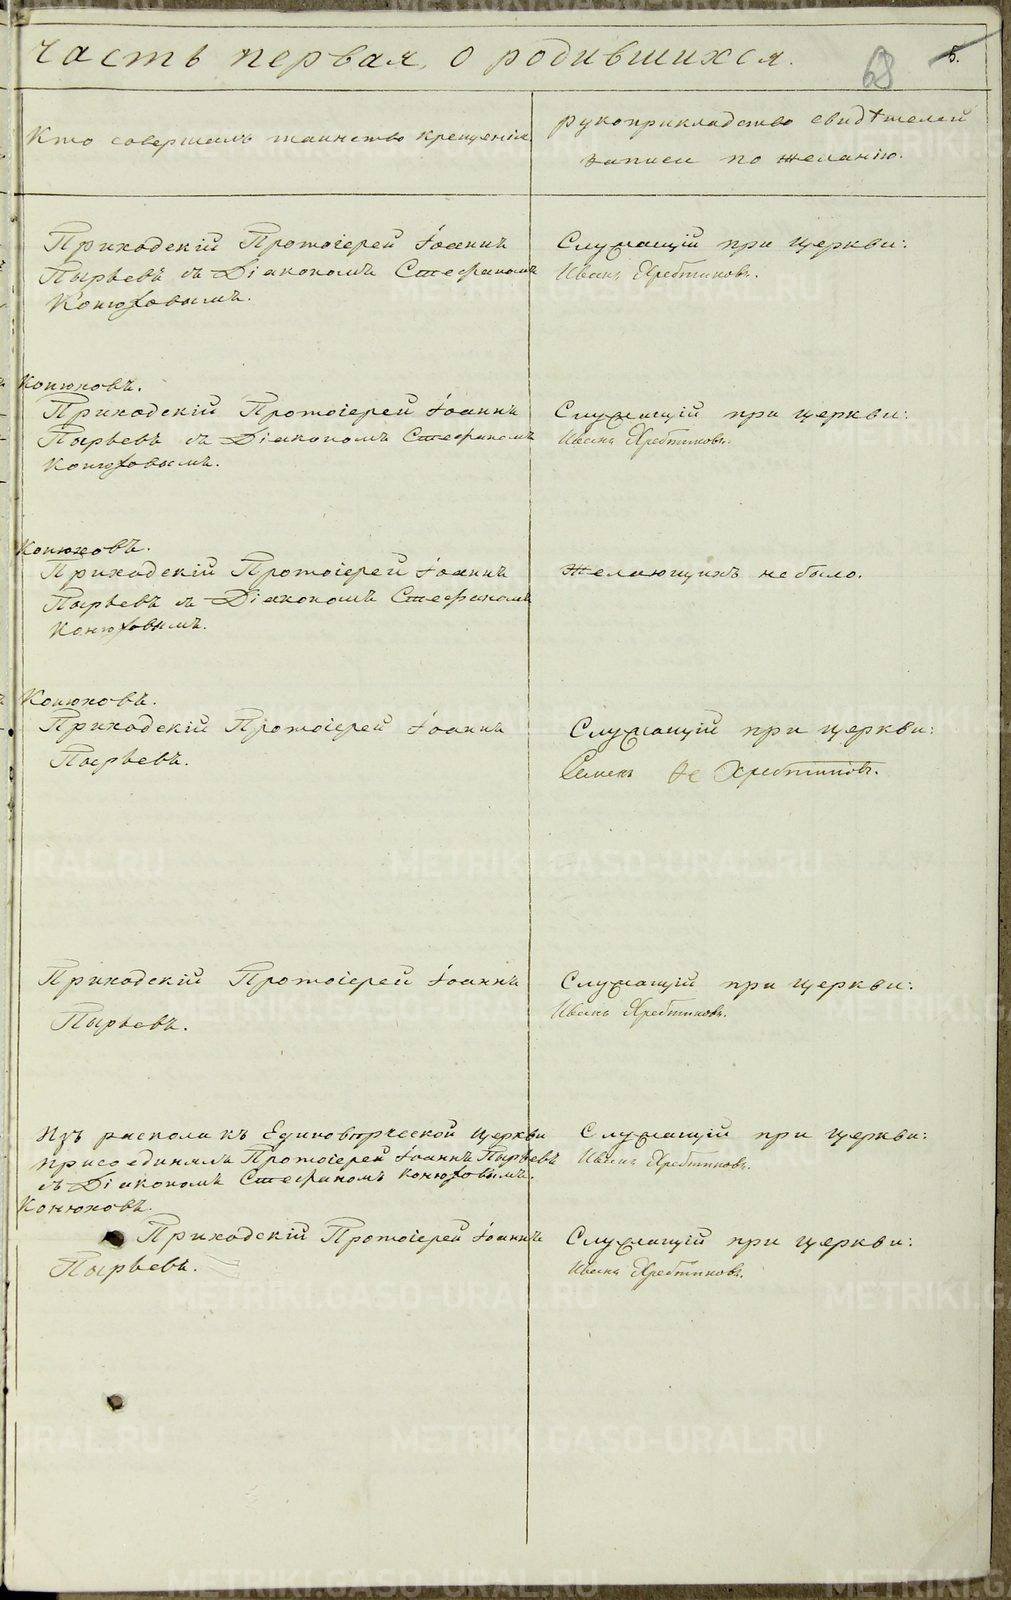 Часть первая, о родившихся.
68
5.
Кто совершалъ таинство крещенія
рукоприкладство свидѣтелей
записи по желанію.
Приходскій Протоіерей Іоаннъ
Пырьевъ съ Діакономъ Стефаномъ
Конюховымъ.
Служащій при церкви:
Иванъ Хребтиковъ.
Конюховъ.
Приходскій Протоіерей Іоаннъ
Пырьевъ съ Діакономъ Стефаномъ
Конюховымъ.
Служащій при церкви:
Иванъ Хребтиковъ.
Конюховъ.
Приходскій Протоіерей Іоаннъ
Пырьевъ съ Діакономъ Стефаномъ
Конюховымъ.
Желающихъ небыло.
Конюховъ.
Приходскій Протоіерей Іоаннъ
Пырьевъ.
Служащій при церкви:
Семенъ Хребтиковъ.
Приходскій Протоіерей Іоаннъ
Пырьевъ.
Служащій при церкви:
Иванъ Хребтиковъ.
Изъ раскола къ Единовѣрческой Церкви
присоединялъ Протоіерей Іоаннъ Пырьевъ
съ Діакономъ Стефаномъ Конюховымъ.
Конюховъ.
Служащій при церкви:
Иванъ Хребтиковъ.
Приходскій Протоіерей Іоаннъ
Пырьевъ.
Служащій при церкви:
Иванъ Хребтиковъ.
METRIKI.GASO-URAL.RU